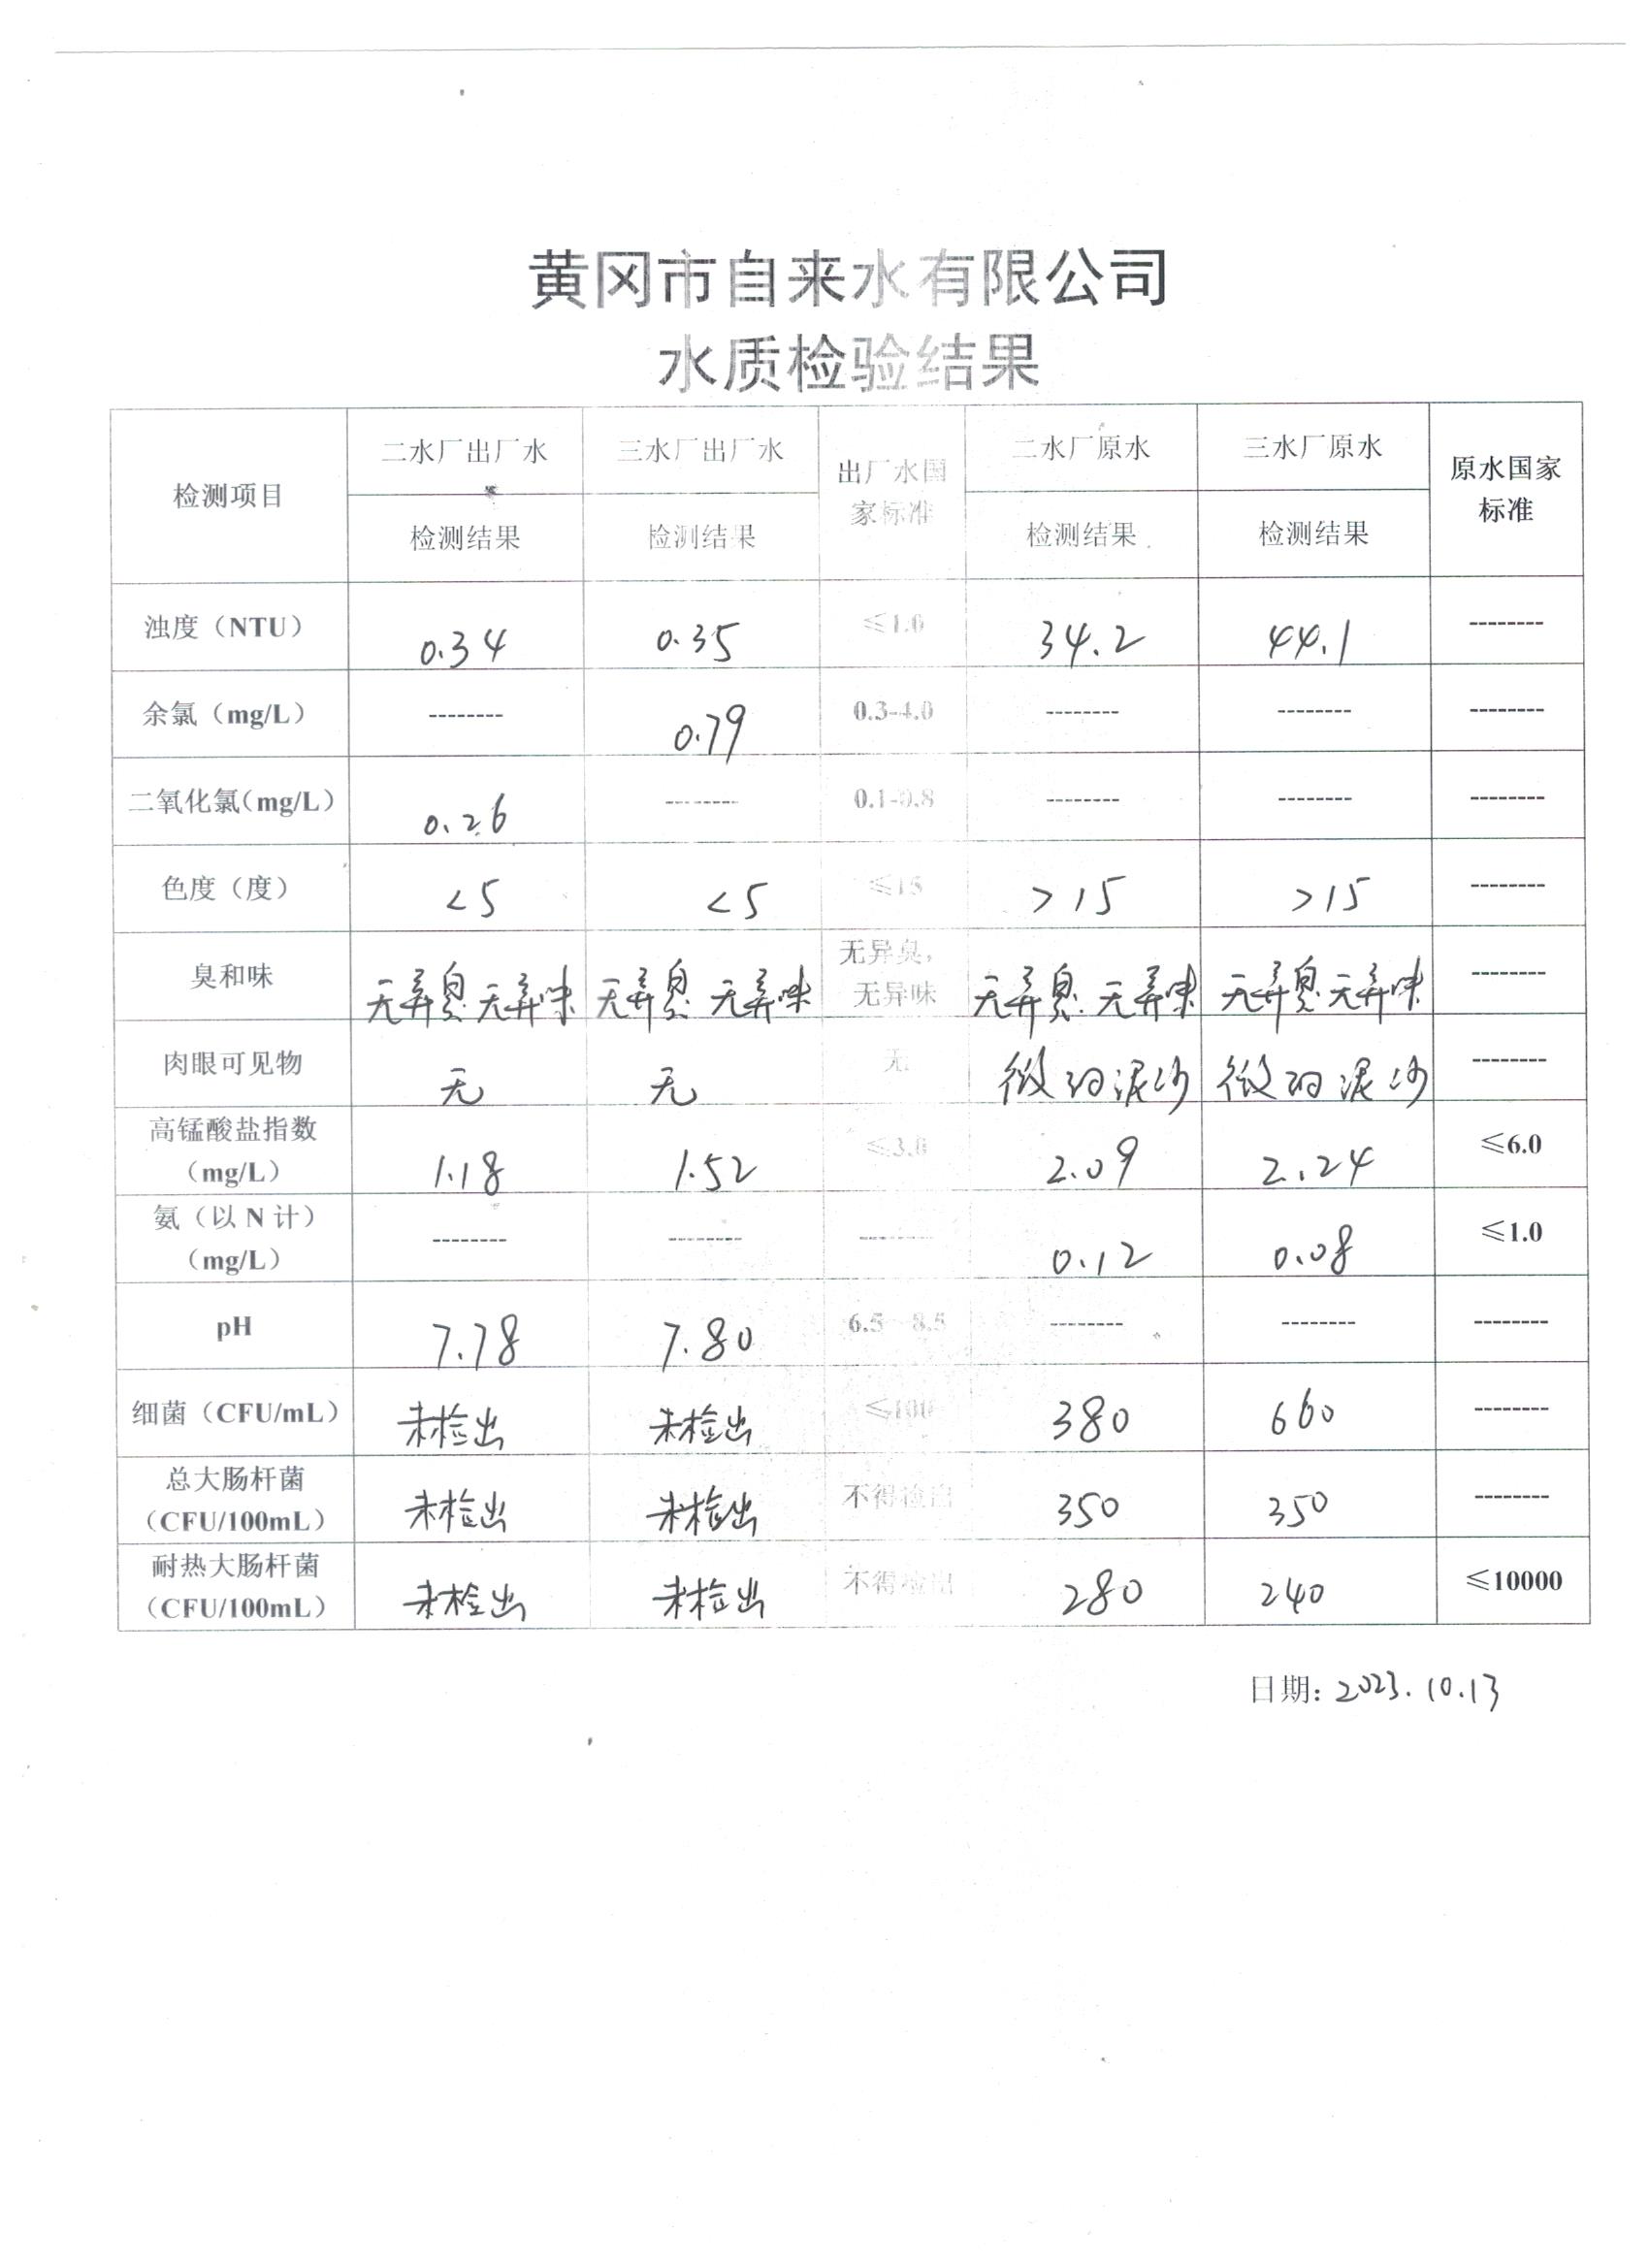 黄冈市自来水有限公司
水质检验结果
检测项目 二水厂出厂水 三水厂出厂水 出厂水国家标准 二水厂原水 三水厂原水 原水国家标准
检测结果 检测结果 检测结果 检测结果
浊度（NTU） 0.34 0.35 ≤1.0 34.2 44.1 --------
余氯（mg/L） -------- 0.79 0.3-4.0 -------- -------- --------
二氧化氯（mg/L） 0.26 -------- 0.1-0.8 -------- -------- --------
色度（度） <5 <5 ≤15 >15 >15 --------
臭和味 无异臭 无异味 无异臭 无异味 无异臭，无异味 无异臭 无异味 无异臭 无异味 --------
肉眼可见物 无 无 无 微的泥沙 微的泥沙 --------
高锰酸盐指数（mg/L） 1.18 1.52 ≤3.0 2.09 2.24 ≤6.0
氨（以 N 计）（mg/L） -------- -------- -------- 0.12 0.08 ≤1.0
pH 7.78 7.80 6.5 8.5 -------- -------- --------
细菌（CFU/mL） 未检出 未检出 ≤100 380 660 --------
总大肠杆菌（CFU/100mL） 未检出 未检出 不得检出 350 350 --------
耐热大肠杆菌（CFU/100mL） 未检出 未检出 不得检出 280 240 ≤10000
日期: 2023.10.13